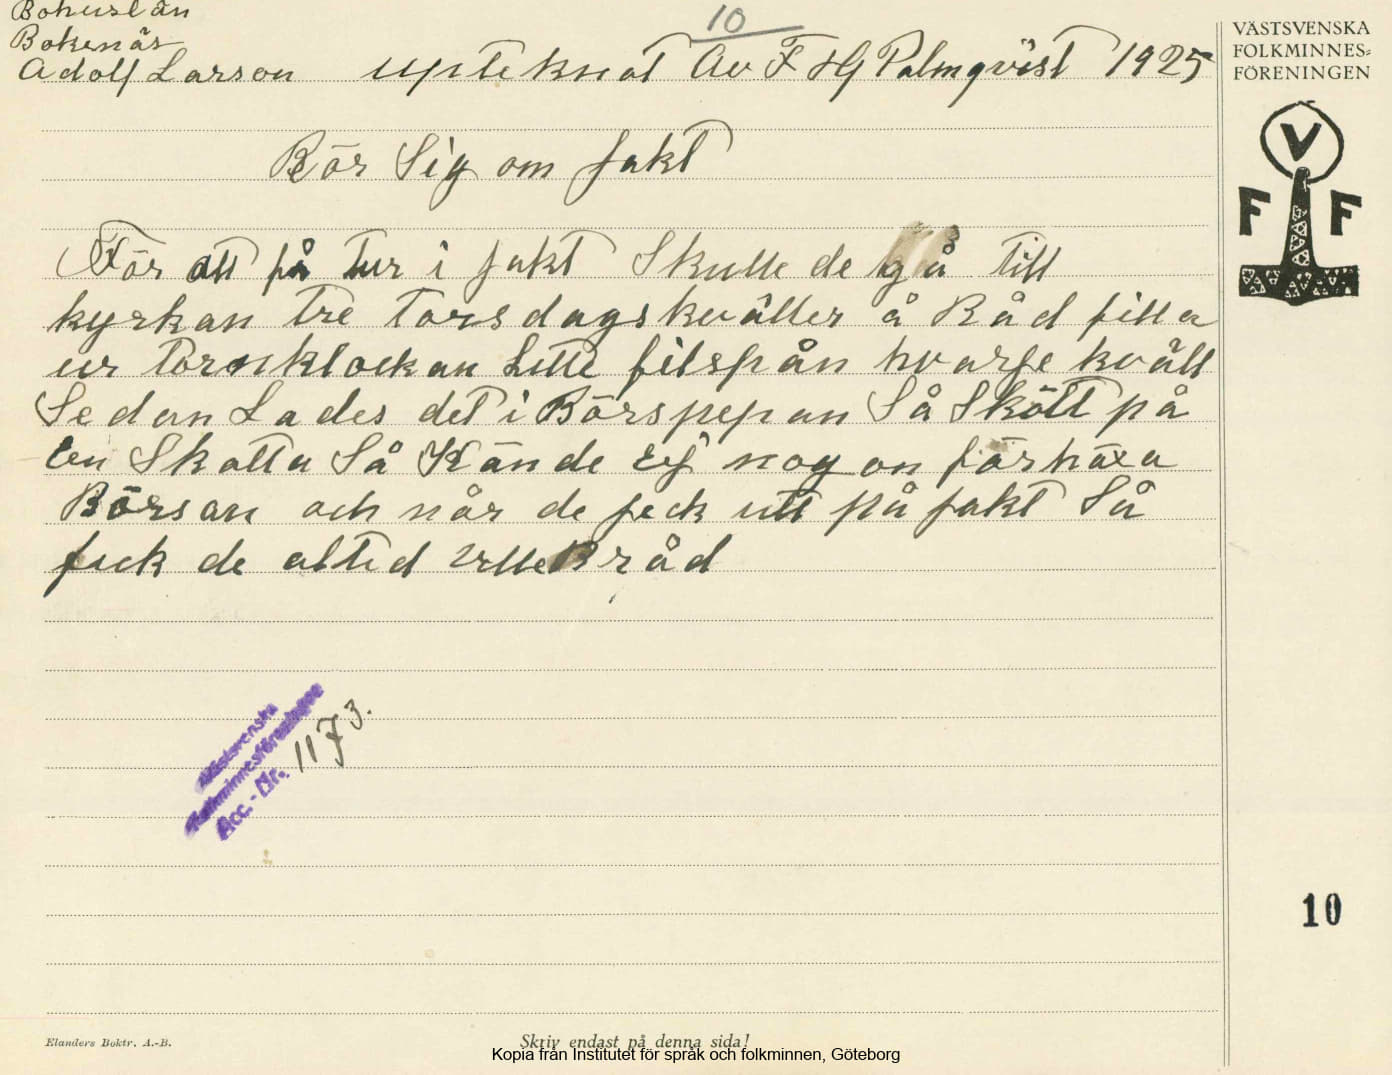 10
Bohuslän
Bokenäs
Adolf Larson upteknat Av F HG Palmqvist 1925
VÄSTSVENSKA
FOLKMINNES-
FÖRENINGEN
V
F F
Rör Sig om jakt
För att få tur i jakt Skulle de gå till
kyrkan tre torsdagskväller å Råd filla
ur tornklockan Litte filspån hvarje kväll
Sedan Lades det i Börspepan Så Skött på
en Skatta Så Kände Ej nogon förhäxa
Börsan och når de feck utt på jakt Så
feck de altid villebråd
Västsvenska
Folkminnesföreningen
Acc.-Nr. 1173.
10
Elanders Boktr. A.-B.
Skriv endast på denna sida!
Kopia från Institutet för språk och folkminnen, Göteborg